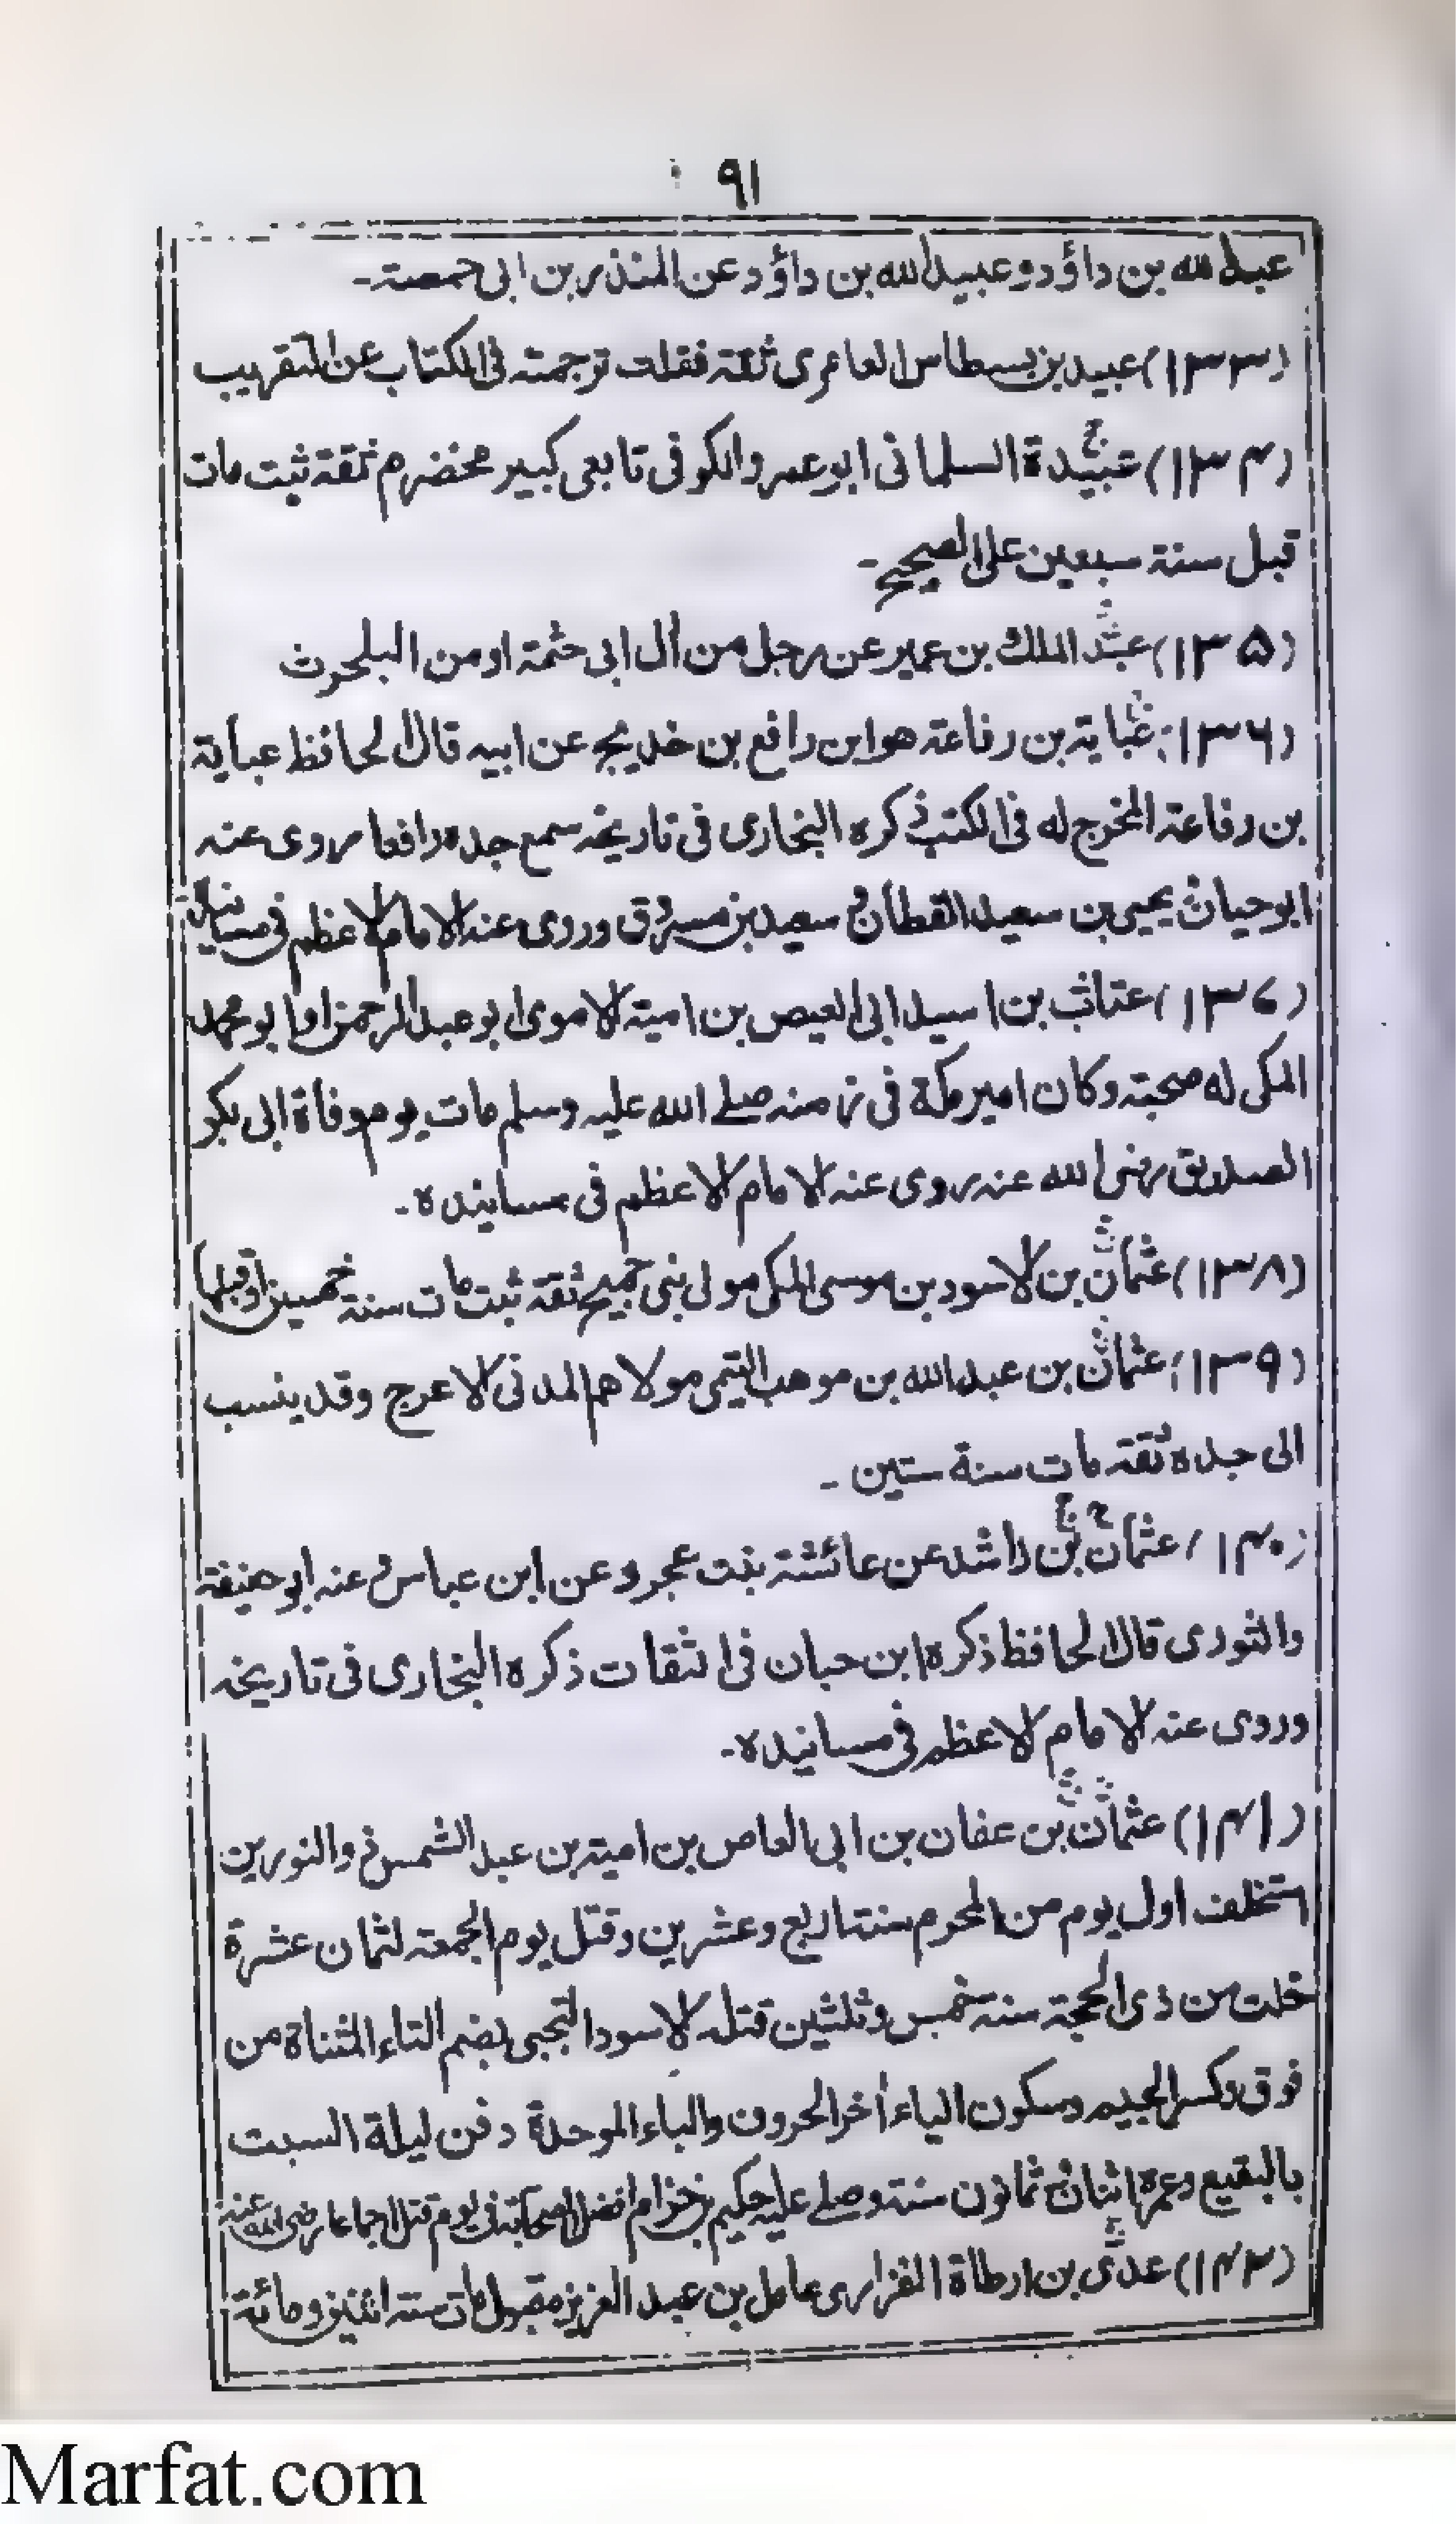 ٩١
عبد الله بن داؤد وعبيد الله بن داؤد عن المنذر بن ابى حمصة-
(١٣٣) عبيد بن بسطاس العامرى ثقة فقلت ترجمته فى الكتاب عن التقريب
(١٣٤) عبيدة السلمانى ابو عمرو الكوفى تابعى كبير مخضرم ثقة ثبت مات
قبل سنة سبعين على الصحيح-
(١٣٥) عبد الملك بن عمير عن رجل من اٰل ابى حثمة او من البلحرث
(١٣٦) عباية بن رفاعة هو ابن رافع بن خديج عن ابيه قال الحافظ عباية
بن رفاعة المخرج له فى الكتب ذكره البخارى فى تاريخه سمع جده رافعا روى عنه
ابو حيان يحيى بن سعيد القطان و سعيد بن مسروق وروى عنه الامام الاعظم فى مسانيده
(١٣٧) عتاب بن اسيد ابى العيص بن امية الاموى ابو عبد الرحمن او ابو محمد
المكى له صحبة وكان امير مكة فى زمنه صلے الله عليه وسلم مات يوم وفاة ابى بكر
الصديق رضى الله عنه روى عنه الامام الاعظم فى مسانيده-
(١٣٨) عثمان بن الاسود بن موسى المكى مولى بنى جميح ثقة ثبت مات سنة خمسين او قبلها
(١٣٩) عثمان بن عبد الله بن موهب التيمى مولاهم المدنى الاعرج وقد ينسب
الى جده ثقة مات سنة ستين -
(١٤٠) عثمان بن راشد عن عائشة بنت عجرو عن ابن عباس و عنه ابو حنيفة
والثورى قال الحافظ ذكره ابن حبان فى الثقات ذكره البخارى فى تاريخه
وروى عنه الامام الاعظم فى مسانيده-
(١٤١) عثمان بن عفان بن ابى العاص بن امية بن عبد الشمس ذو النورين
استخلف اول يوم من المحرم سنة اربع وعشرين وقتل يوم الجمعة لثمان عشرة
خلت من ذى الحجة سنة خمس وثلثين قتله الاسود التجبى بضم التاء المثناة من
فوق وكسر الجيم وسكون الياء اٰخر الحروف والباء الموحدة دفن ليلة السبت
بالبقيع وعمره اثنان ثمانون سنة وصلے عليه حكيم بن خزام افضل الصحابة فى يوم قتل اجماعا رضى الله عنه
(١٤٢) عدى بن ارطاة الفزارى عامل بن عبد العزيز مقبول مات سنة اثنين ومائة
Marfat.com